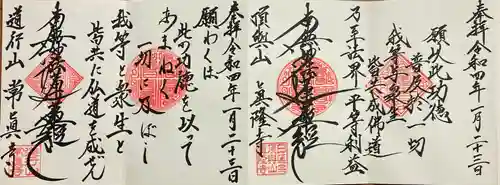 奉拝 令和四年一月二十三日
願以此功徳
普及於一切
我等与衆生
皆共成佛道
南無妙法蓮華経
乃至法界平等利益
頂興山 眞隆寺
奉拝 令和四年一月二十三日
願わくは
此の功徳を以って
あまねく
一切に及ぼし
我等と衆生と
皆共に仏道を成ぜん
南無妙法蓮華経
道行山 常眞寺